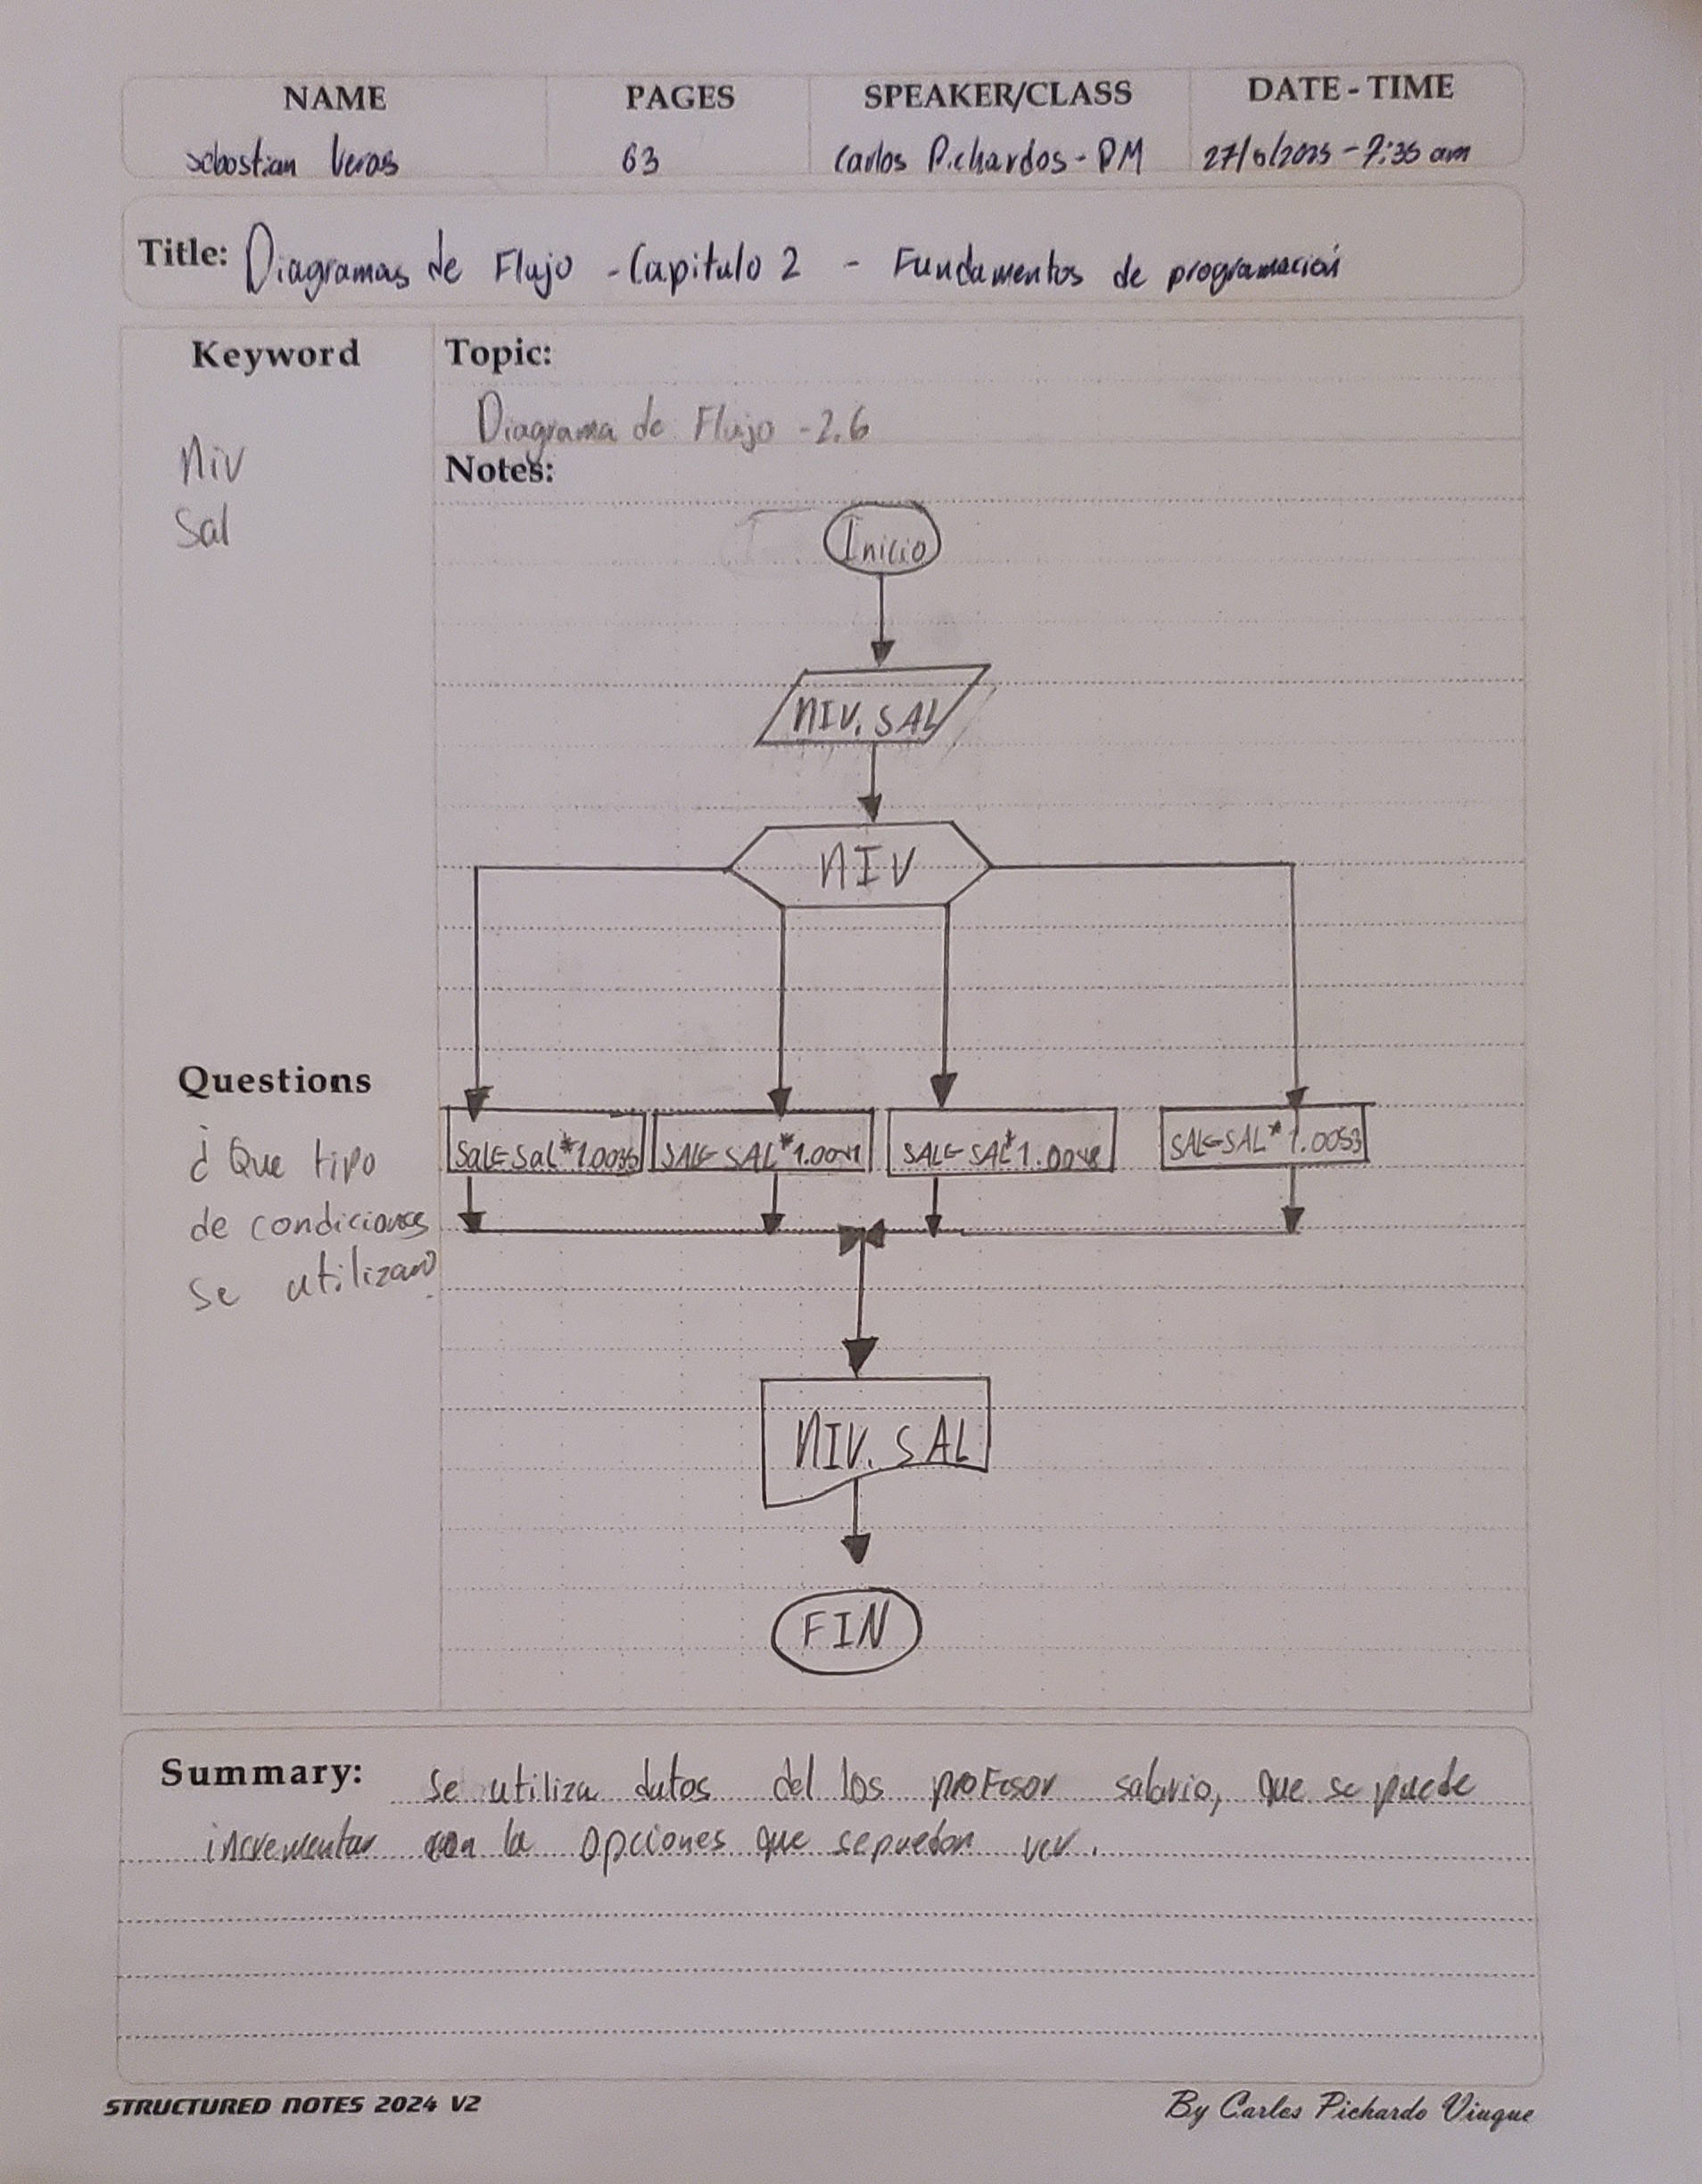 NAME PAGES SPEAKER/CLASS DATE - TIME
sebastian Veras 63 Carlos Pichardos - PM 27/5/2025 - 7:35 am
Title: Diagramas de Flujo - Capitulo 2 - Fundamentos de programación
Keyword
Niv
Sal
Topic:
Diagrama de Flujo - 2.6
Notes:
Inicio
NIV. SAL
NIV
Sal← Sal*1.0035 SAL← SAL*1.0041 SAL← SAL*1.0048 SAL← SAL*1.0053
NIV. SAL
FIN
Questions
¿ Que tipo
de condiciones
se utilizan?
Summary: Se utiliza datos del los profesor salario, que se puede
incrementar con la opciones que se puedan ver.
STRUCTURED NOTES 2024 V2 By Carlos Pichardo Viuque